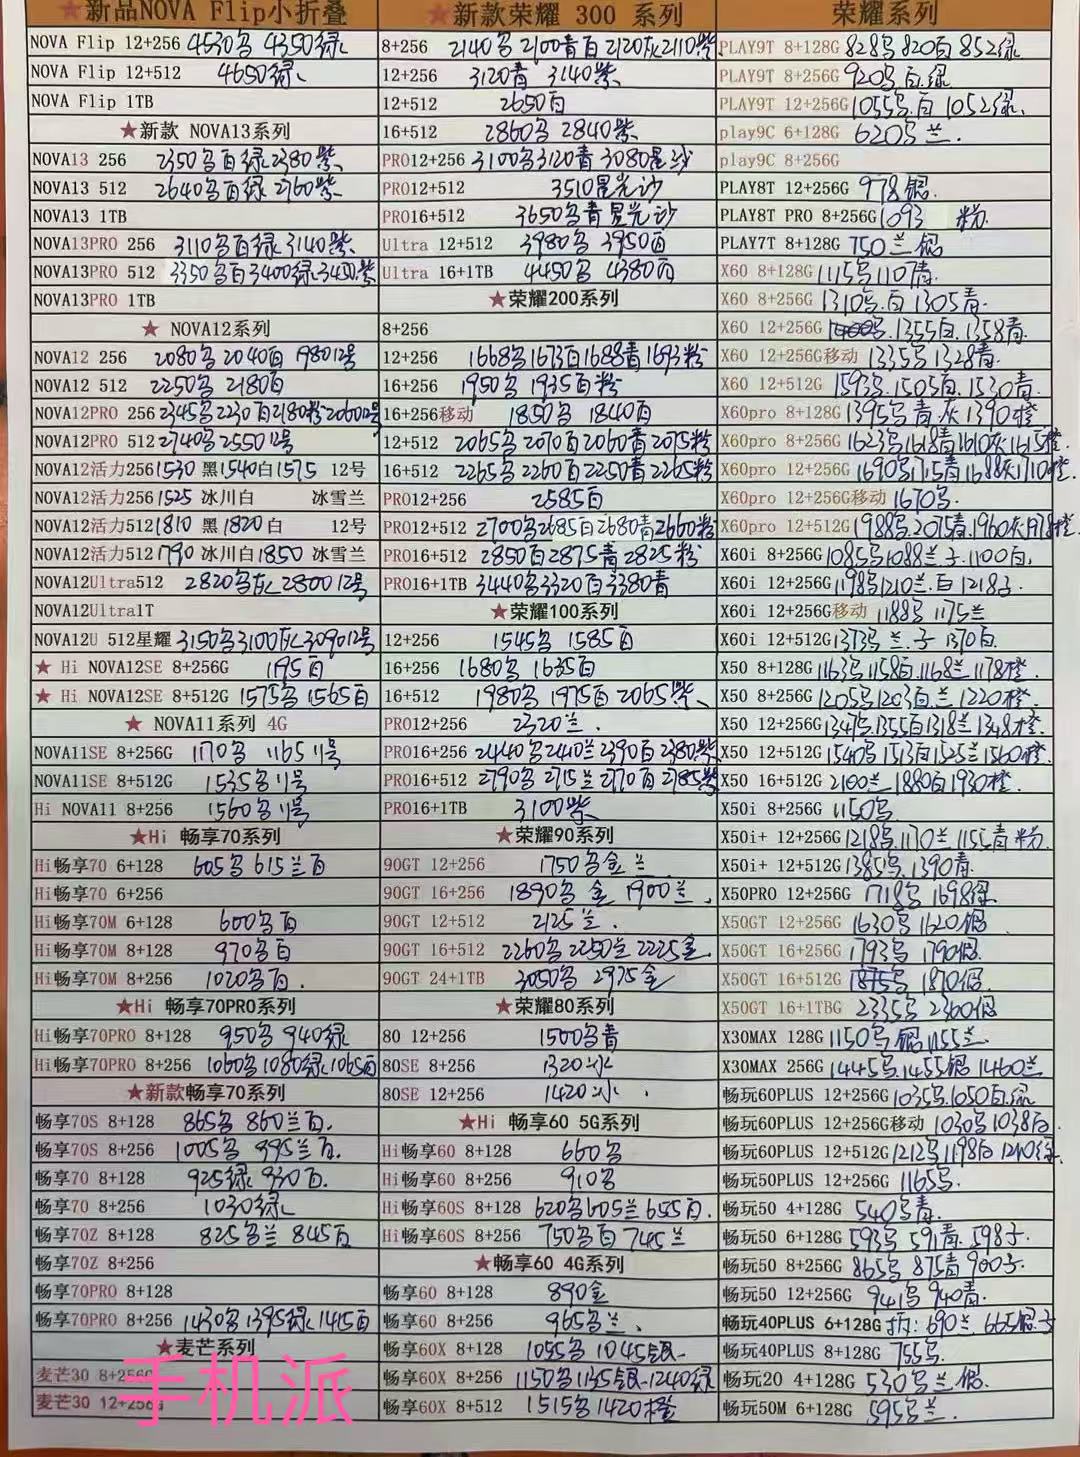 ★新品NOVA Flip小折叠
NOVA Flip 12+256 4530名 4350绿
NOVA Flip 12+512 4650绿
NOVA Flip 1TB
★新款 NOVA13系列
NOVA13 256 2350名百绿2380紫
NOVA13 512 2640名百绿 2760紫
NOVA13 1TB
NOVA13PRO 256 3110名百绿 3140紫
NOVA13PRO 512 3350名百3400绿 3450紫
NOVA13PRO 1TB
★ NOVA12系列
NOVA12 256 2080名 2040百 1980 12号
NOVA12 512 2250名 2180百
NOVA12PRO 256 2345名2230百2180粉2060 12号
NOVA12PRO 512 2740名 2550 12号
NOVA12活力256 1530 黑1540白1575 12号
NOVA12活力256 1525 冰川白 冰雪兰
NOVA12活力512 1810 黑1820白 12号
NOVA12活力512 1790 冰川白1850 冰雪兰
NOVA12Ultra512 2820名灰2800 12号
NOVA12Ultra1T
NOVA12U 512星耀 3150名3100灰3090 12号
★ Hi NOVA12SE 8+256G 1195百
★ Hi NOVA12SE 8+512G 1575名 1565百
★ NOVA11系列 4G
NOVA11SE 8+256G 1170名 1165 11号
NOVA11SE 8+512G 1535名11号
Hi NOVA11 8+256 1560名11号
★Hi 畅享70系列
Hi畅享70 6+128 605名 615兰百
Hi畅享70 6+256
Hi畅享70M 6+128 600名百
Hi畅享70M 8+128 970名百
Hi畅享70M 8+256 1020名百.
★Hi 畅享70PRO系列
Hi畅享70PRO 8+128 950名 940绿
Hi畅享70PRO 8+256 1060名1080绿1065百
★新款畅享70系列
畅享70S 8+128 865名 860兰百.
畅享70S 8+256 1005名 995兰百.
畅享70 8+128 925绿 930百.
畅享70 8+256 1030绿
畅享70Z 8+128 825名兰 845百
畅享70Z 8+256
畅享70PRO 8+128
畅享70PRO 8+256 1430名1395绿1415百
★麦芒系列
麦芒30 8+256G
麦芒30 12+256G
手机派
★新款荣耀 300 系列
8+256 2140名 2100青百 2120灰2110紫
12+256 3120青 3140紫
12+512 2650百
16+512 2860名 2840紫
PRO12+256 3100名3120青 3080星沙
PRO12+512 3510星光沙
PRO16+512 3650名青星光沙
Ultra 12+512 3980名 3950百
Ultra 16+1TB 4450名 4380百
★荣耀200系列
8+256
12+256 1668名1673百1688青1693粉
16+256 1950名 1935百粉
16+256移动 1850名 1840百
12+512 2065名 2070百2060青2075粉
16+512 2265名 2260百2250青2265粉
PRO12+256 2585百
PRO12+512 2700名2685百2680青2660粉
PRO16+512 2850百2875青2825粉
PRO16+1TB 3440名3320百3380青
★荣耀100系列
12+256 1545名 1585百
16+256 1680名 1635百
16+512 1980名 1975百 2065紫
PRO12+256 2320兰.
PRO16+256 2440名2410兰2390百2380紫
PRO16+512 2790名 2715兰2770百2785紫
PRO16+1TB 3100紫
★荣耀90系列
90GT 12+256 1750名金兰
90GT 16+256 1890名 金 1900兰.
90GT 12+512 2125兰.
90GT 16+512 2260名2250兰2225金
90GT 24+1TB 3050名 2975金
★荣耀80系列
80 12+256 1500名青
80SE 8+256 1320冰
80SE 12+256 1420冰.
★Hi 畅享60 5G系列
Hi畅享60 8+128 660名
Hi畅享60 8+256 910名
Hi畅享60S 8+128 620名605兰655百.
Hi畅享60S 8+256 750名百745兰
★畅享60 4G系列
畅享60 8+128 890金
畅享60 8+256 965名兰.
畅享60X 8+128 1055名 1045银
畅享60X 8+256 1150名1135银1240绿
畅享60X 8+512 1515名1420橙
荣耀系列
PLAY9T 8+128G 828名820百852绿
PLAY9T 8+256G 920名.百.绿
PLAY9T 12+256G 1055名.百 1052绿.
play9C 6+128G 620名兰.
play9C 8+256G
PLAY8T 12+256G 978银.
PLAY8T PRO 8+256G 1093 粉
PLAY7T 8+128G 750兰 银
X60 8+128G 1115名1107青.
X60 8+256G 1310名.百 1305青.
X60 12+256G 1355百.1358青.
X60 12+256G移动 1335名1328青.
X60 12+512G 1593名.1505百.1530青.
X60pro 8+128G 1395名青.灰1390橙
X60pro 8+256G 1623名1618青1610灰1615橙.
X60pro 12+256G 1690名1715青1688灰1710橙.
X60pro 12+256G移动 1670名.
X60pro 12+512G 1988名.2075青.1960灰1978橙
X60i 8+256G 1085名1088兰.子1100百.
X60i 12+256G 1198名1210兰.百1218子.
X60i 12+256G移动 1188名 1175兰
X60i 12+512G 1373名 兰.子 1370百.
X50 8+128G 1163名1158百.1168兰 1178橙.
X50 8+256G 1205名1203百.兰 1220橙.
X50 12+256G 1347名.1355百1318兰1348橙.
X50 12+512G 1540名1513百1525兰1560橙.
X50 16+512G 2100兰 1880百1930橙
X50i 8+256G 1150名
X50i+ 12+256G 1218名.1170兰1155青 粉.
X50i+ 12+512G 1385名.1390青.
X50PRO 12+256G 1718名 1698绿
X50GT 12+256G 1630名 1620银
X50GT 16+256G 1793名 1790银.
X50GT 16+512G 1875名 1870银.
X50GT 16+1TBG 2335名 2360银
X30MAX 128G 1150名 银1155兰
X30MAX 256G 1445名.1455银 1460兰
畅玩60PLUS 12+256G 1035名.1050百.绿
畅玩60PLUS 12+256G移动 1030名1038百.
畅玩60PLUS 12+512G 1212名1198百 1210绿.
畅玩50PLUS 12+256G 1165名.
畅玩50 4+128G 540名青.
畅玩50 6+128G 593名 591青.598子.
畅玩50 8+256G 865名 875青 900子.
畅玩50 12+256G 941名 940青.
畅玩40PLUS 6+128G 690兰.665银.子
畅玩40PLUS 8+128G 755名.
畅玩20 4+128G 530名兰银.
畅玩50M 6+128G 595名兰.